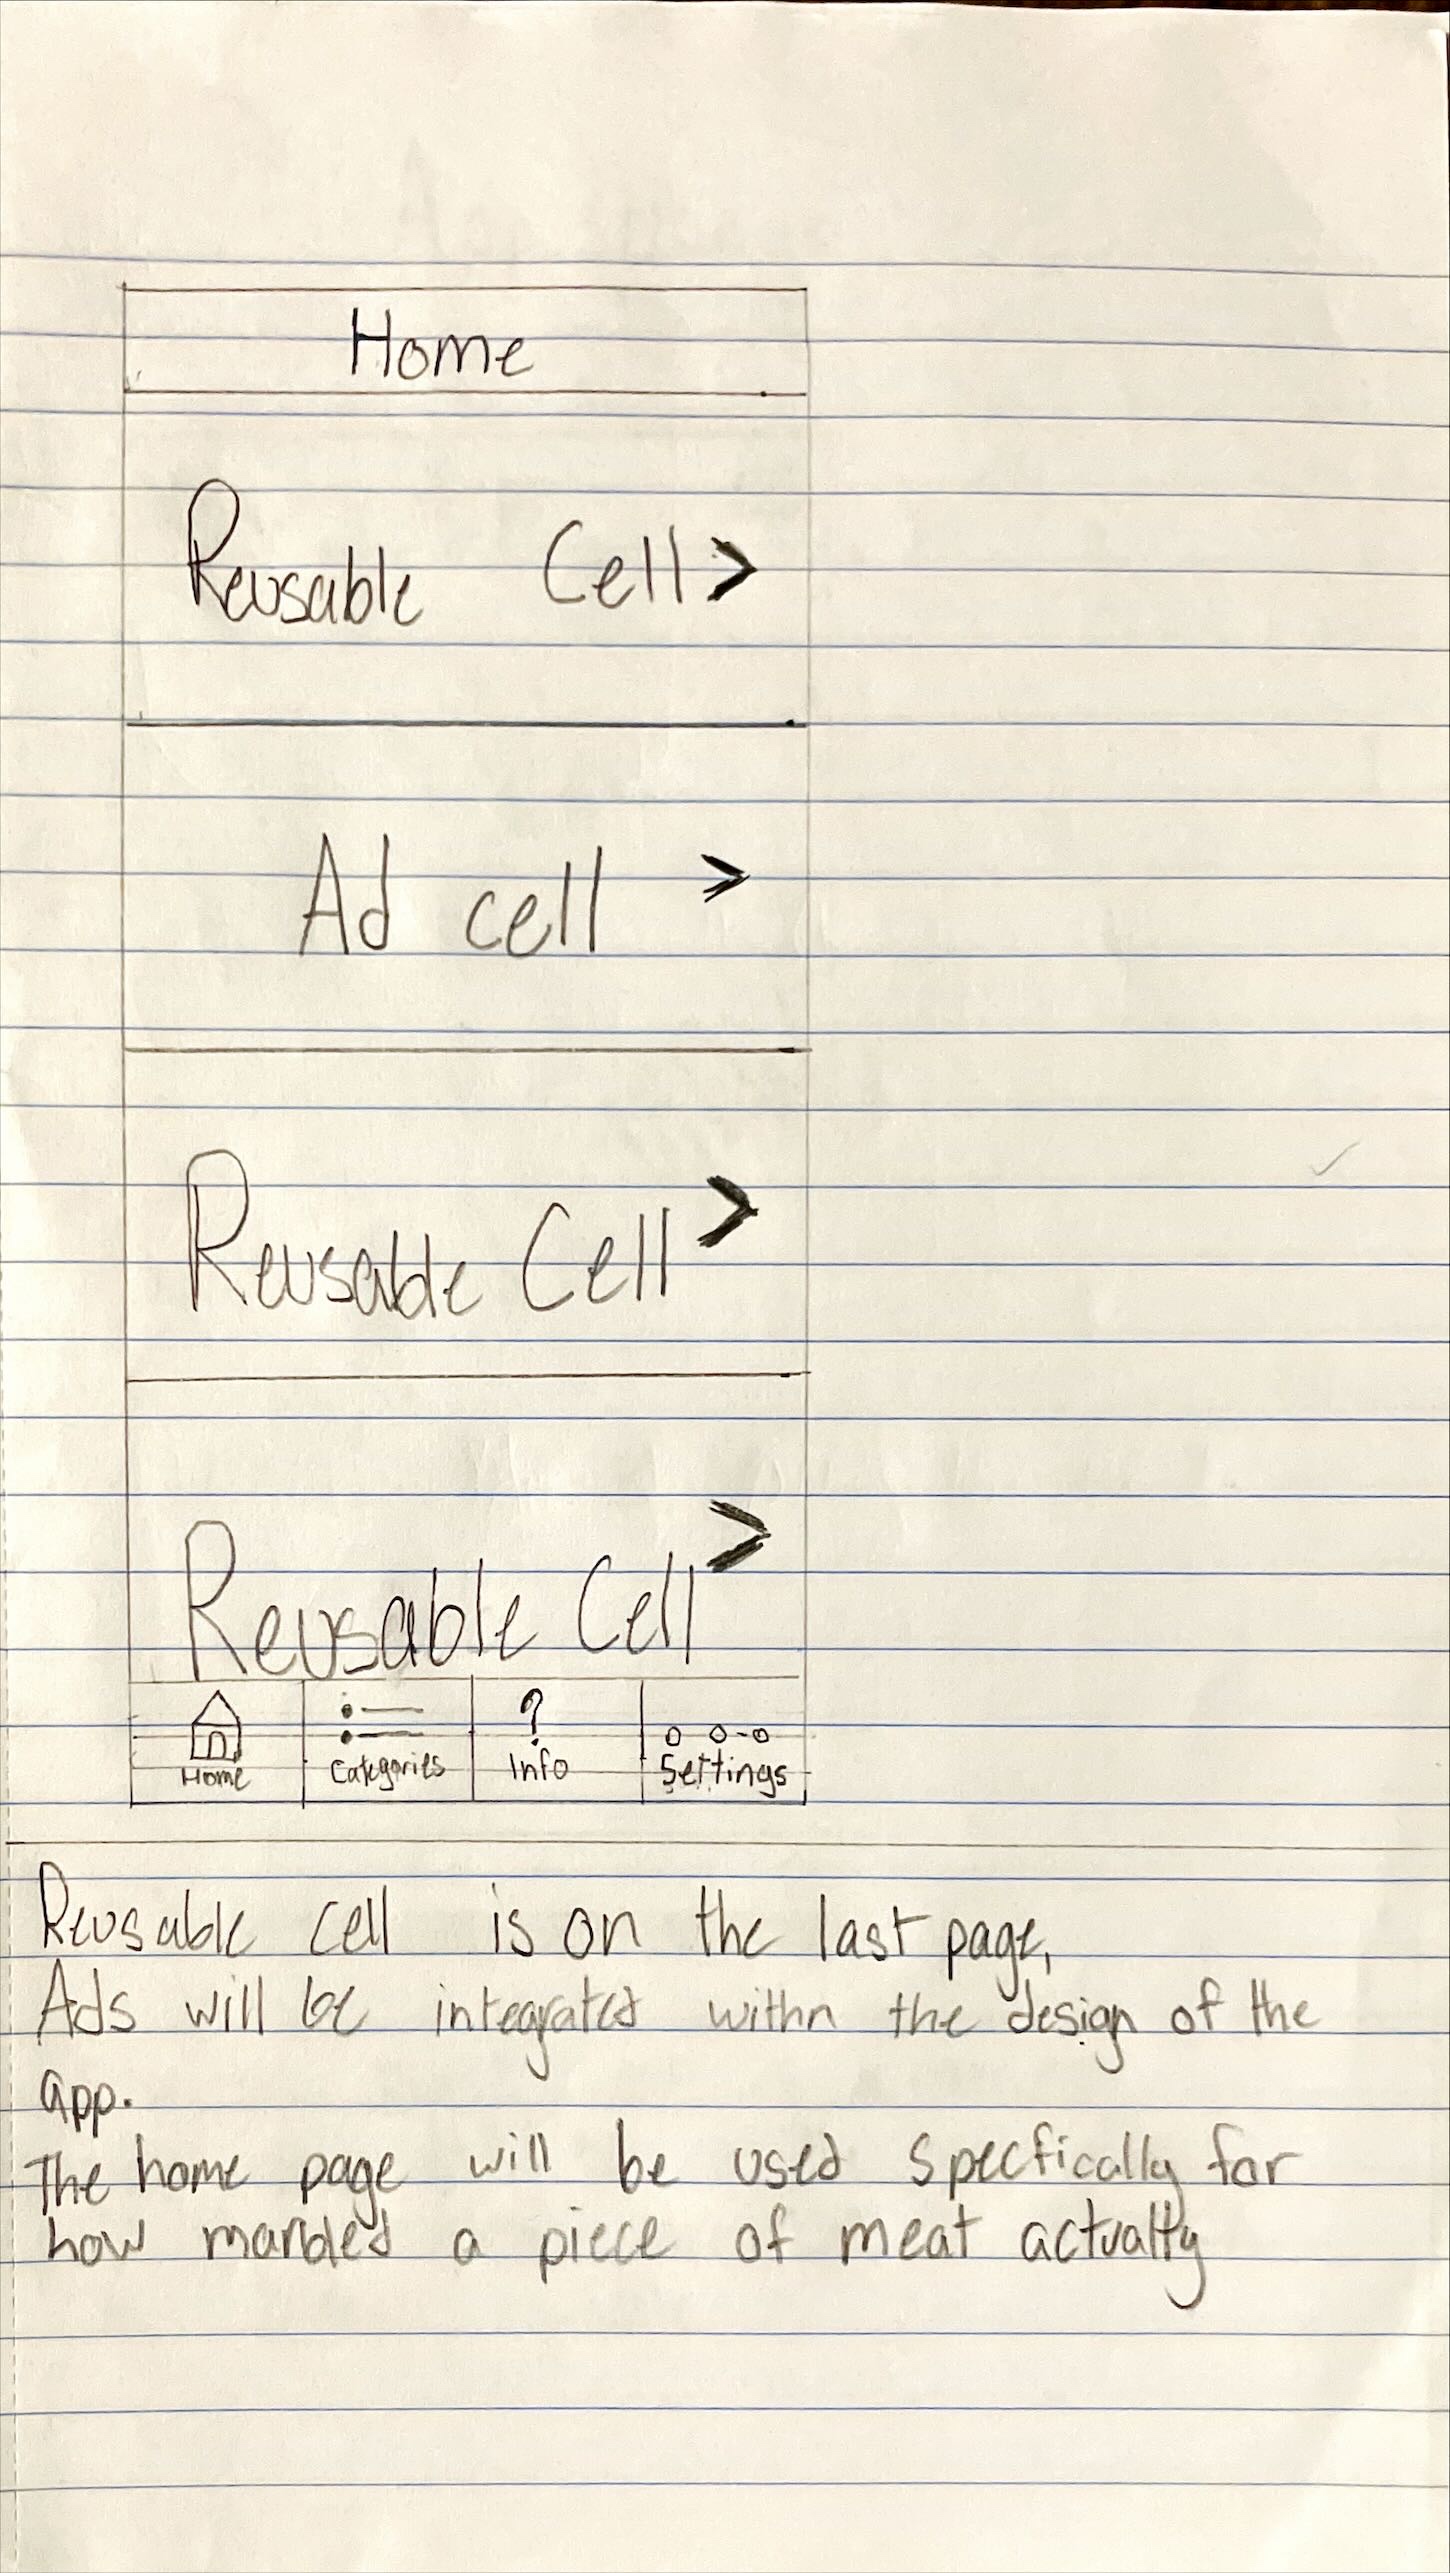 Home
Reusable Cell >
Ad cell >
Reusable Cell >
Reusable Cell >
? 
Home Categories Info Settings
Reusable cell is on the last page,
Ads will be integrated withn the design of the
app.
The home page will be used specfically for
how marbled a piece of meat actually